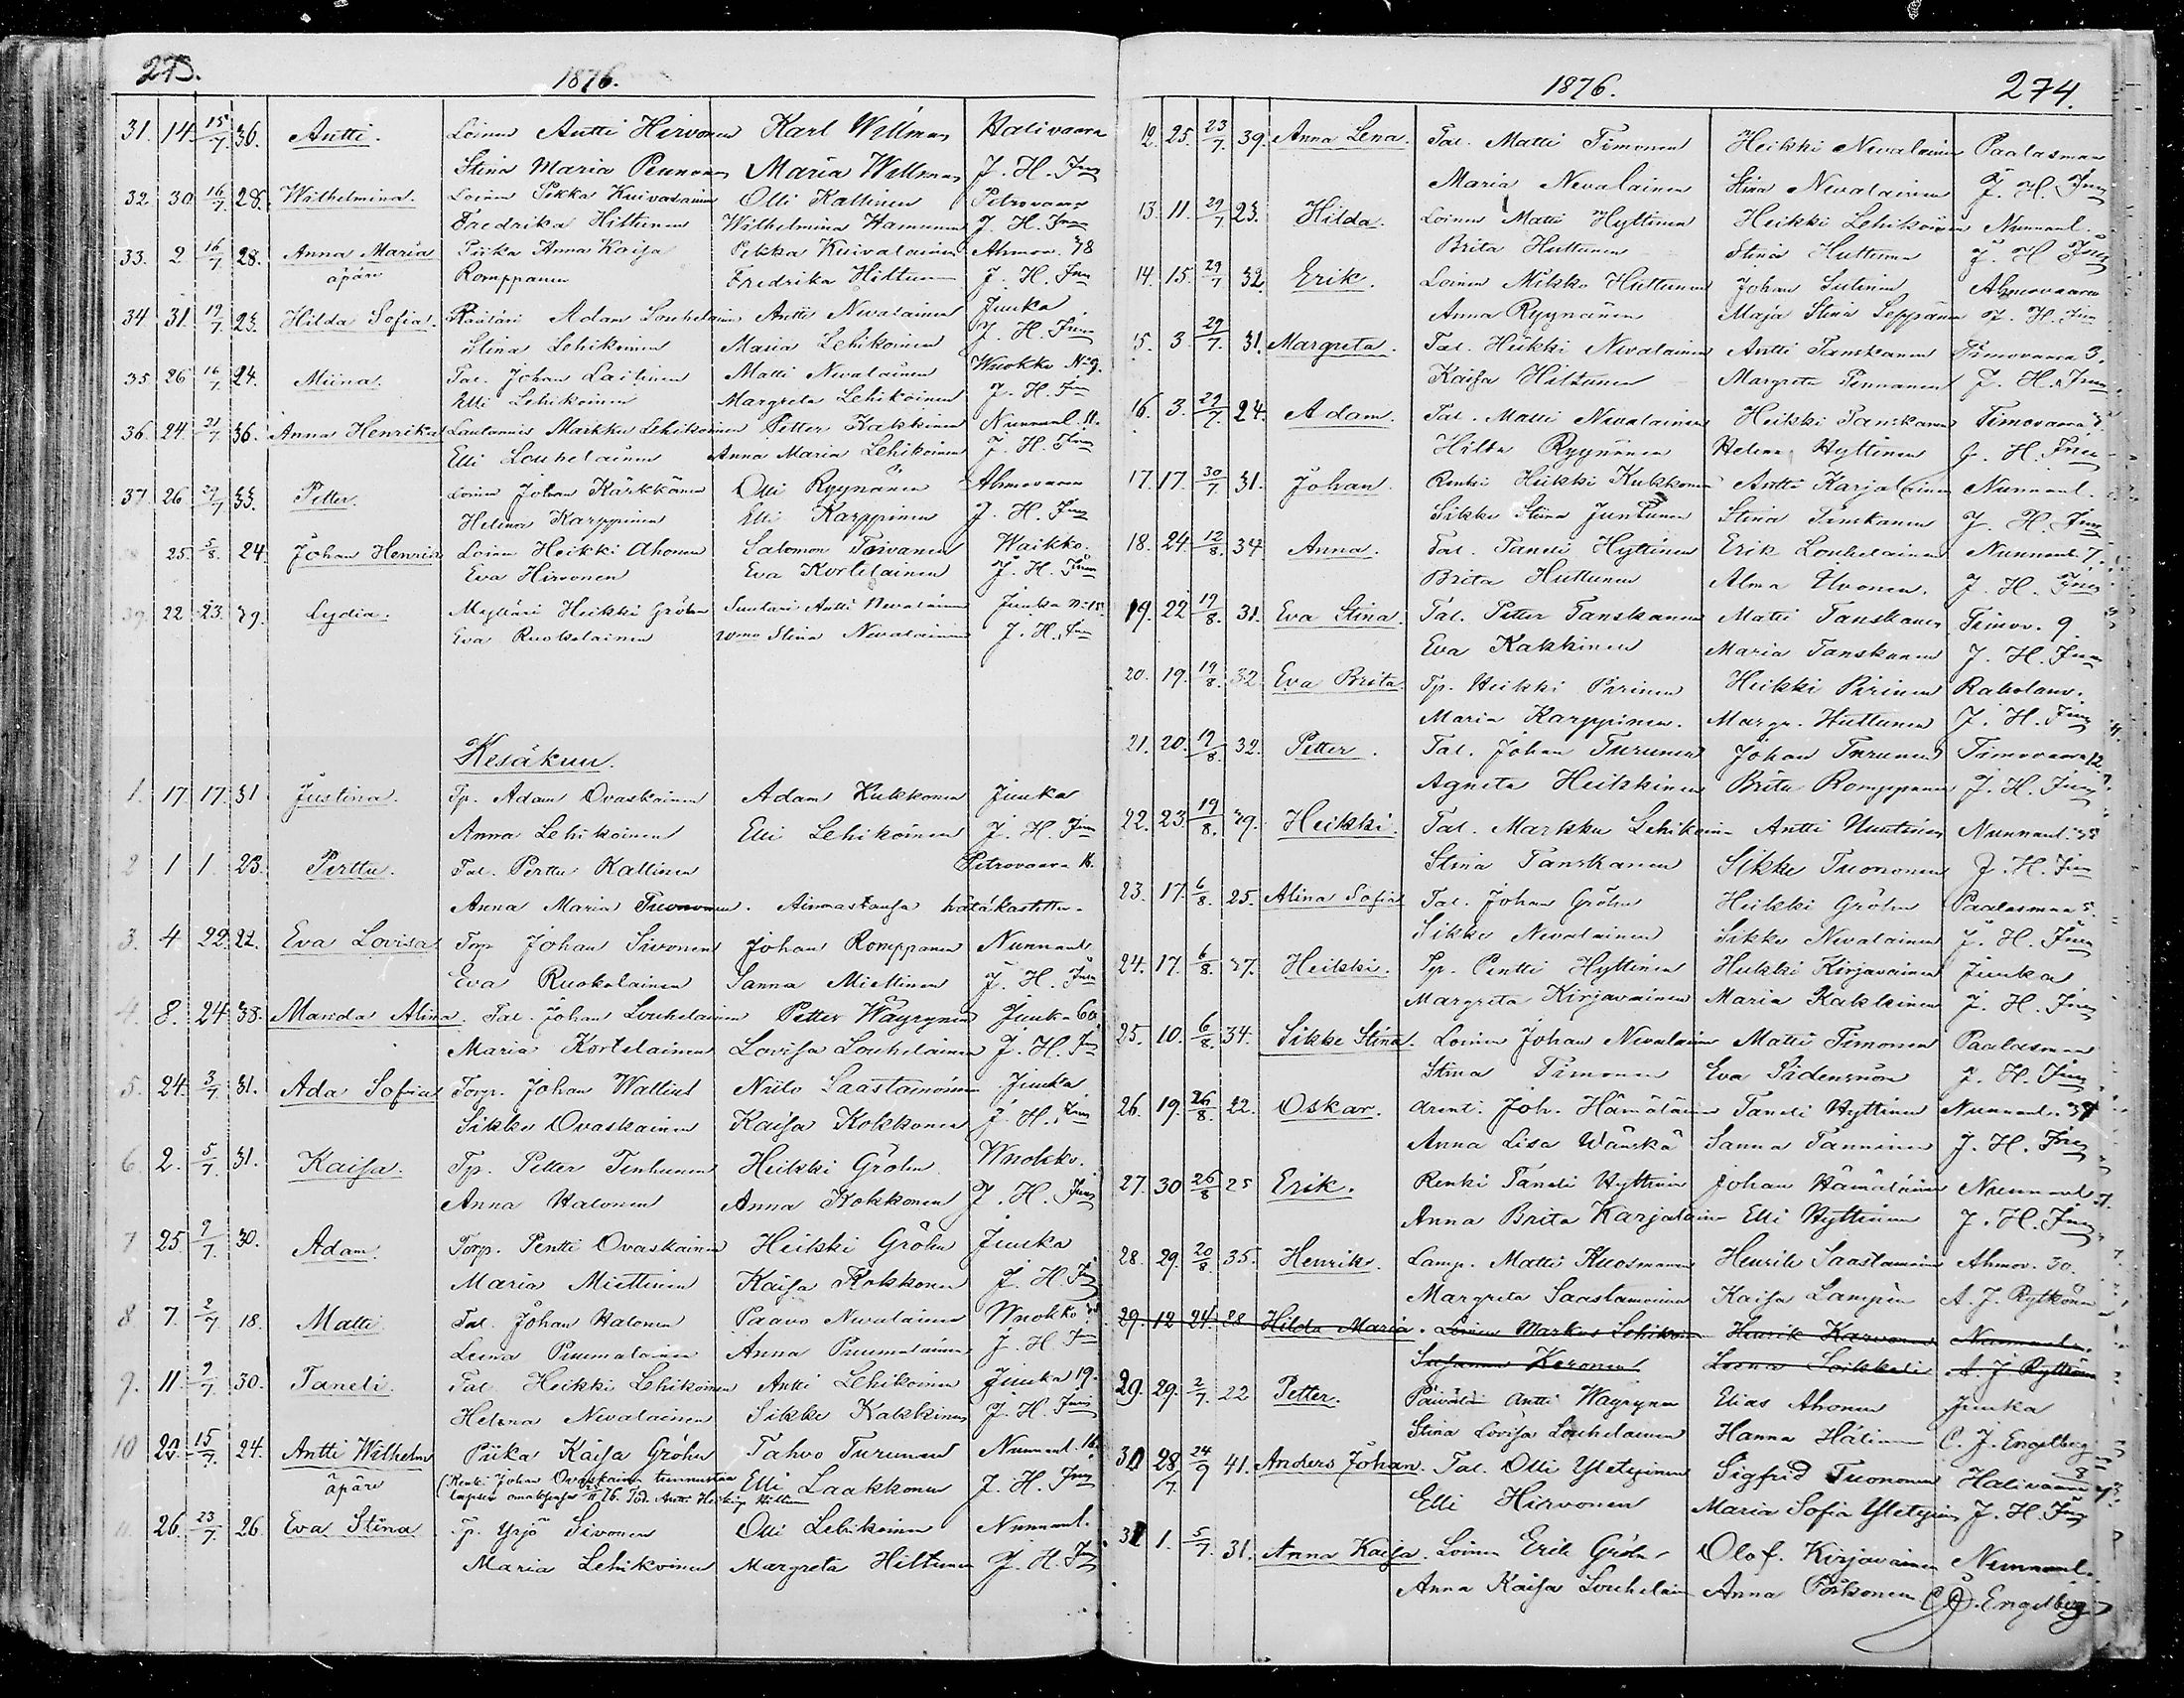 273.
1876.
31. 14. 15/7. 36. Antti. Loinen Antti Hirvonen Karl Willman Halivaara
Stina Maria Pennanen Maria Willman J. H. Jun
32 30 16/7. 28. Wilhelmina. Loinen Pekka Kuivalainen Olli Kallinen Petrovaara
Fredrika Hiltunen Wilhelmina Hamunen J. H. Jun
33. 2 16/7 28. Anna Maria Piika Anna Kaisa Pekka Kuivalainen Ahmov. 38
äpäre Romppanen Fredrika Hiltunen J. H. Jun
34 31. 19/7. 23. Hilda Sofia. Räätäri Adam Louhelainen Antti Nevalainen Juuka
Stina Lehikoinen Maria Lehikoinen J. H. Jun
35. 26 16/7 24. Miina. Tal. Johan Laitinen Matti Nevalainen Wuokko No 9.
Elli Lehikoinen Margreta Lehikoinen J. H. Jun
36. 24. 21/7 36. Anna Henrika Lautamies Markku Lehikoinen Petter Kakkinen Nunnanl. 11.
Elli Louhelainen Anna Maria Lehikoinen J. H. Jun
37. 26 29/7 33. Petter. Loinen Johan Kärkkäinen Olli Ryynänen Ahmovaara
Helena Karppinen Elli Karppinen J. H. Jun
25. 5/8. 24. Johan Henrik Loinen Heikki Ahonen Salomon Toivanen Waikko.
Eva Hirvonen Eva Kortelainen J. H. Jun
39. 22 23. 39. Lydia. Mylläri Heikki Gröhn Suutari Antti Nevalainen Juuka No 15.
Eva Ruokolainen vmo Stina Nevalainen J. H. Jun
Kesäkuu.
1. 17 17. 31 Justina. Tp. Adam Ovaskainen Adam Kukkonen Juuka
Anna Lehikoinen Elli Lehikoinen J. H. Jun
2 1 1. 23. Perttu. Tal. Perttu Kallinen Petrovaara 16.
Anna Maria Tuononen. Ainoastansa hätäkastettu.
3. 4. 22. 22. Eva Lovisa Torp Johan Sivonen Johan Romppanen Nunnanl.
Eva Ruokolainen Sanna Miettinen J. H. Jun
4. 8. 24 38. Manda Alina. Tal. Johan Louhelainen Petter Wäyrynen Juuka 60.
Maria Kortelainen Lovisa Louhelainen J. H. Jun
5. 24. 3/7. 31. Ada Sofia Torp. Johan Wallius Niilo Saastamoinen Juuka
Sikke Ovaskainen Kaisa Kokkonen J. H. Jun
6. 2. 5/7. 31. Kaisa. Tp. Petter Tenhunen Heikki Gröhn Wuokko.
Anna Halonen Anna Kokkonen J. H. Jun
7 25. 9/7. 30. Adam. Torp. Pentti Ovaskainen Heikki Gröhn Juuka
Maria Miettinen Kaisa Kokkonen J. H. Jun
8 7. 2/7 18. Matti Tal. Johan Halonen Paavo Nevalainen Wuokko
Leena Puumalainen Anna Puumalainen J. H. Jun
9. 11. 9/7 30. Taneli. Tal Heikki Lehikoinen Antti Lehikoinen Juuka 19.
Helena Nevalainen Sikke Kakkinen J. H. Jun
10 29. 15/7. 24. Antti Wilhelm Piika Kaisa Gröhn Tahvo Turunen Nunnanl. 16.
äpäre (Renki Johan Ovaskainen tunnustaa Elli Laakkonen J. H. Jun
lapsen omaksensa
11. 26. 23/7. 26. Eva Stina. Tp. Yrjö Sivonen Olli Lehikoinen Nunnanl.
Maria Lehikoinen Margreta Hiltunen J. H. Jun
1876. 274.
12. 25. 23/7. 39. Anna Lena. Tal. Matti Timonen Heikki Nevalainen Paalasmaa
Maria Nevalainen Stina Nevalainen J. H. Jun
13. 11. 29/7 23. Hilda. Loinen Matti Hyttinen Heikki Lehikoinen Nunnanl.
Brita Huttunen Stina Huttunen J. H. Jun
14. 15. 29/7 32. Erik. Loinen Mikko Huttunen Johan Sutinen Ahmovaara
Anna Ryynänen Maja Stina Leppänen J. H. Jun
15. 3 29/7. 31. Margreta. Tal. Heikki Nevalainen Antti Tanskanen Timovaara 3.
Kaisa Hiltunen Margreta Pennanen J. H. Jun
16. 3. 29/7. 24. Adam. Tal. Matti Nevalainen Heikki Tanskanen Timovaara 3.
Hilta Ryynänen Helena Hyttinen J. H. Jun
17. 17. 30/7 31. Johan Renki Heikki Kukkonen Antti Karjalainen Nunnanl.
Sikke Stina Juntunen Stina Tanskanen J. H. Jun
18. 24. 12/8. 34 Anna. Tal. Taneli Hyttinen Erik Louhelainen Nunnanl. 7.
Brita Huttunen Alma Uvonen. J. H. Jun
19. 22 19/8. 31. Eva Stina. Tal. Petter Tanskanen Matti Tanskanen Timov. 9.
Eva Kakkinen Maria Tanskanen J. H. Jun
20. 19. 19/8. 32. Eva Brita. Tp. Heikki Pirinen Heikki Pirinen Raholanv.
Maria Karppinen. Margr. Huttunen J. H. Jun
21. 20. 19/8. 32. Petter. Tal. Johan Turunen Johan Turunen Timovaara 12.
Agneta Heikkinen Brita Romppanen J. H. Jun
22. 23. 19/8. 39. Heikki. Tal. Markku Lehikoinen Antti Nuutinen Nunnanl. 33
Stina Tanskanen Sikke Tuononen J. H. Jun
23. 17. 6/8. 25. Alina Sofia Tal. Johan Gröhn Heikki Gröhn Paalasmaa 5.
Sikke Nevalainen Sikke Nevalainen J. H. Jun
24. 17. 6/8. 37. Heikki. Tp. Pentti Hyttinen Heikki Kirjavainen Juuka
Margreta Kirjavainen Maria Kakkinen J. H. Jun
25. 10. 6/8. 34. Sikke Stina. Loinen Johan Nevalainen Matti Timonen Paalasmaa
Stina Timonen Eva J. H. Jun
26. 19. 26/8. 22. Oskar. Arent. Joh. Hämäläinen Taneli Hyttinen Nunnanl. 37
Anna Lisa Wänskä Sanna Tanninen J. H. Jun
27. 30 26/8 25 Erik. Renki Taneli Hyttinen Johan Hämäläinen Nunnanl. 37.
Anna Brita Karjalainen Elli Hyttinen J. H. Jun
28. 29. 20/8. 35. Henrik. Lamp. Matti Kuosmanen Henrik Saastamoinen Ahmov. 30.
Margreta Saastamoinen Kaisa Lampén A. J. Rytkönen
29. 12 24. 28 Hilda Maria. Loinen Markus Lehikoinen Henrik Karvonen Nunnanl.
Susanna Keronen Leena Laikkeli A. J. Rytkönen
29. 29. 2/7. 22 Petter. Päiväl. Antti Wäyrynen Elias Ahonen Juuka
Stina Lovisa Louhelainen Hanna Hälinen C. J. Engelberg
30 28/7. 24/9 41. Anders Johan. Tal. Olli Yletyinen Sigfrid Tuononen Halivaara 8
Elli Hirvonen Maria Sofia Yletyinen J. H. Jun
31 1. 5/7. 31. Anna Kaisa. Loinen Erik Gröhn Olof. Kirjavainen Nunnanl.
Anna Kaisa Louhelainen Anna Törhönen C. J. Engelberg